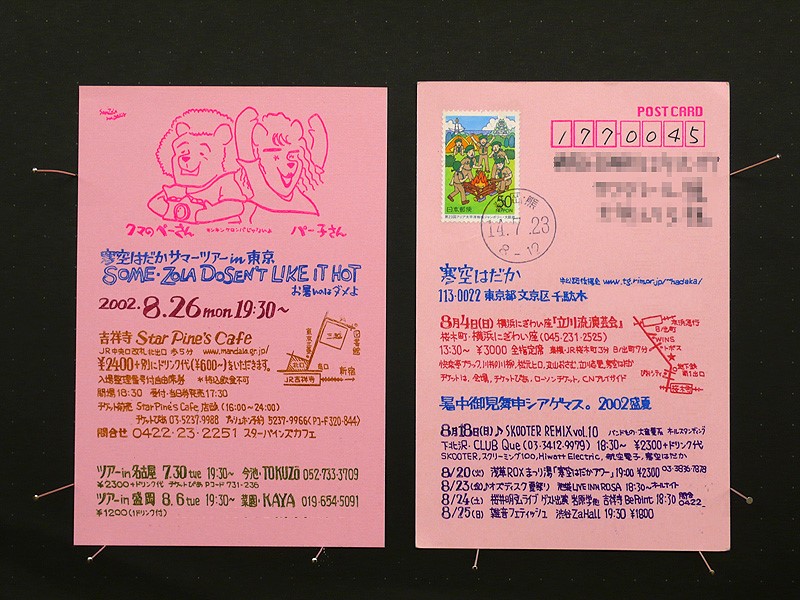 クマのペーさん
パー子さん
寒空はだかサマーツアーin東京
SOME·ZOLA DOSEN'T LIKE IT HOT
お暑いのはダメよ
2002. 8.26 mon 19:30~
吉祥寺 Star Pine's Cafe
JR中央口改札北口 歩5分 www.mandala.gr.jp/
¥2400+別にドリンク代(¥600~)をいただきます。
入場整理番号付自由席券 *持込飲食不可
開場18:30 受付・当日券発売17:30
チケット前売 StarPine's Cafe 店頭 (16:00~24:00)
チケットぴあ 03-5237-9988 5237-9966(Pコード320-844)
問合せ 0422-23-2251 スターパインズカフェ
JR吉祥寺
新宿
ツアーin名古屋 7.30 tue 19:30~ 今池・TOKUZO 052-733-3709
¥2300+ドリンク代 チケットぴあ Pコード731-236
ツアーin盛岡 8.6 tue 19:30~ 菜園・KAYA 019-654-5091
¥1200(1ドリンク付)
POST CARD
1770045
50
NIPPON
日本郵便
14.7.23
8-12
寒空はだか
113-0022 東京都文京区千駄木
8月4日(日) 横浜にぎわい座『立川流演芸会』
桜木町・横浜にぎわい座(045-231-2525)
13:30~ ¥3000 全指定席 東横・JR桜木町3分 B/出町7分
チケットは、会場、チケットぴあ、ローソンチケット、CNプレイガイド
WINS
桜木町
暑中御見舞申シアゲマス。2002盛夏
8月18日(日)♪SKOOTER REMIX vol.10
下北沢・CLUB Que (03-3412-9979) 18:30~ ¥2300+ドリンク代
SKOOTER, スクリーミング100, Hiwatt Electric, 航空電子, 寒空はだか
8/20(火) 浅草ROXまつり湯「寒空はだかアワー」19:00 ¥2300 03-3836-7878
8/23(金)♪オズディスク夏祭り 池袋LIVE INN ROSA 18:30~オールナイト
8/24(土) 桜井明弘ライブ ゲスト出演 吉祥寺 Be Point 18:30 問合 0422-
8/25(日) 雑音フェティッシュ 渋谷ZaHall 19:30 ¥1800